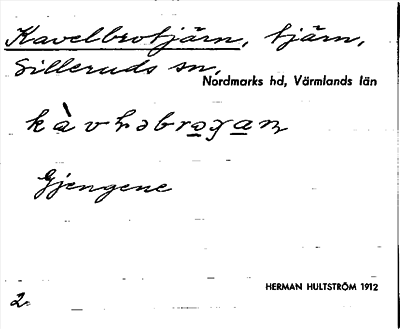 Kavelbrotjärn, tjärn,
Silleruds sn,
Nordmarks hd, Värmlands län
Gjengene
HERMAN HULTSTRÖM 1912
2.